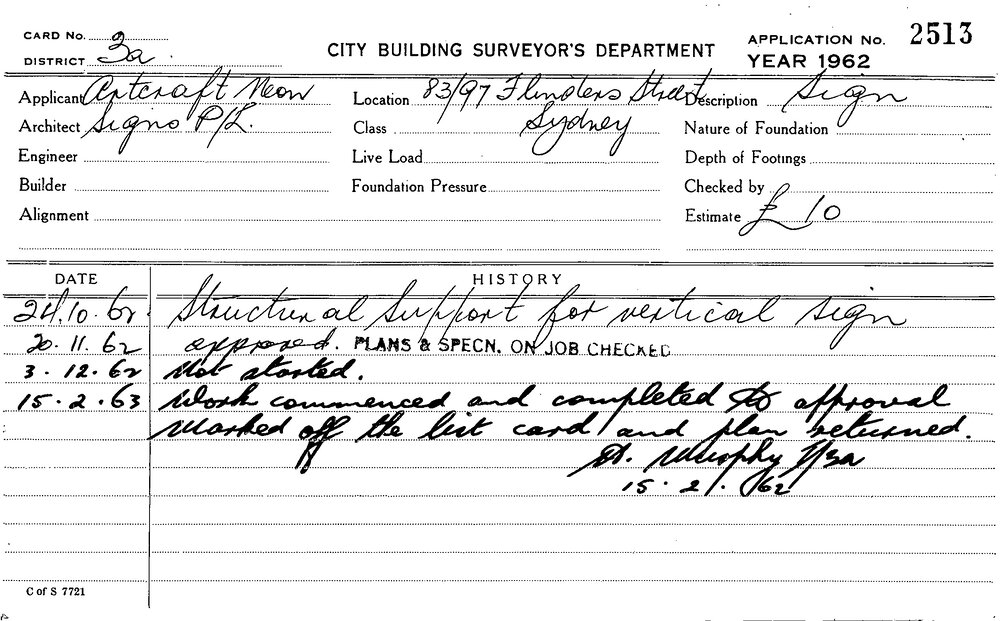 CARD No.
DISTRICT 3a
CITY BUILDING SURVEYOR'S DEPARTMENT
APPLICATION No. 2513
YEAR 1962
Applicant Artcraft Neon
Location 83/97 Flinders Street
Description Sign
Architect Signs P/L.
Class Sydney
Nature of Foundation
Engineer
Live Load
Depth of Footings
Builder
Foundation Pressure
Checked by
Alignment
Estimate £10
DATE HISTORY
24.10.62 Structural Support for vertical sign
20.11.62 approved. PLANS & SPECN. ON JOB CHECKED
3.12.62 Not started.
15.2.63 Work commenced and completed to approval
Marked off the list card and plan returned.
Murphy
15.2.62
C of S 7721